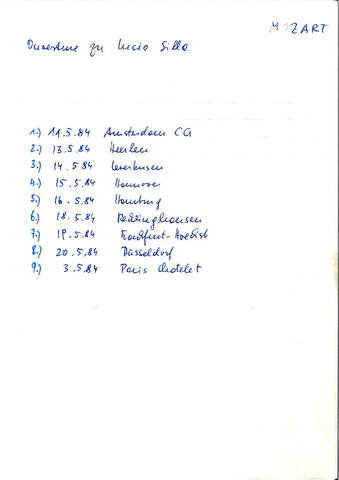 MOZART
Ouverture zu Lucio Silla
1.) 11.5.84 Amsterdam CG
2.) 13.5.84 Heerlen
3.) 14.5.84 Leverkusen
4.) 15.5.84 Hannover
5.) 16.5.84 Hamburg
6.) 18.5.84 Recklinghausen
7.) 19.5.84 Frankfurt-Hoechst
8.) 20.5.84 Düsseldorf
9.) 3.5.84 Paris Chatelet